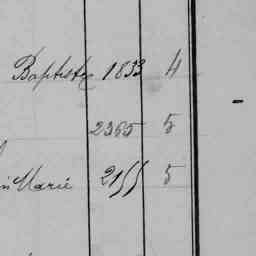 Baptiste 1833 4
2365 5
Marie 2155 5